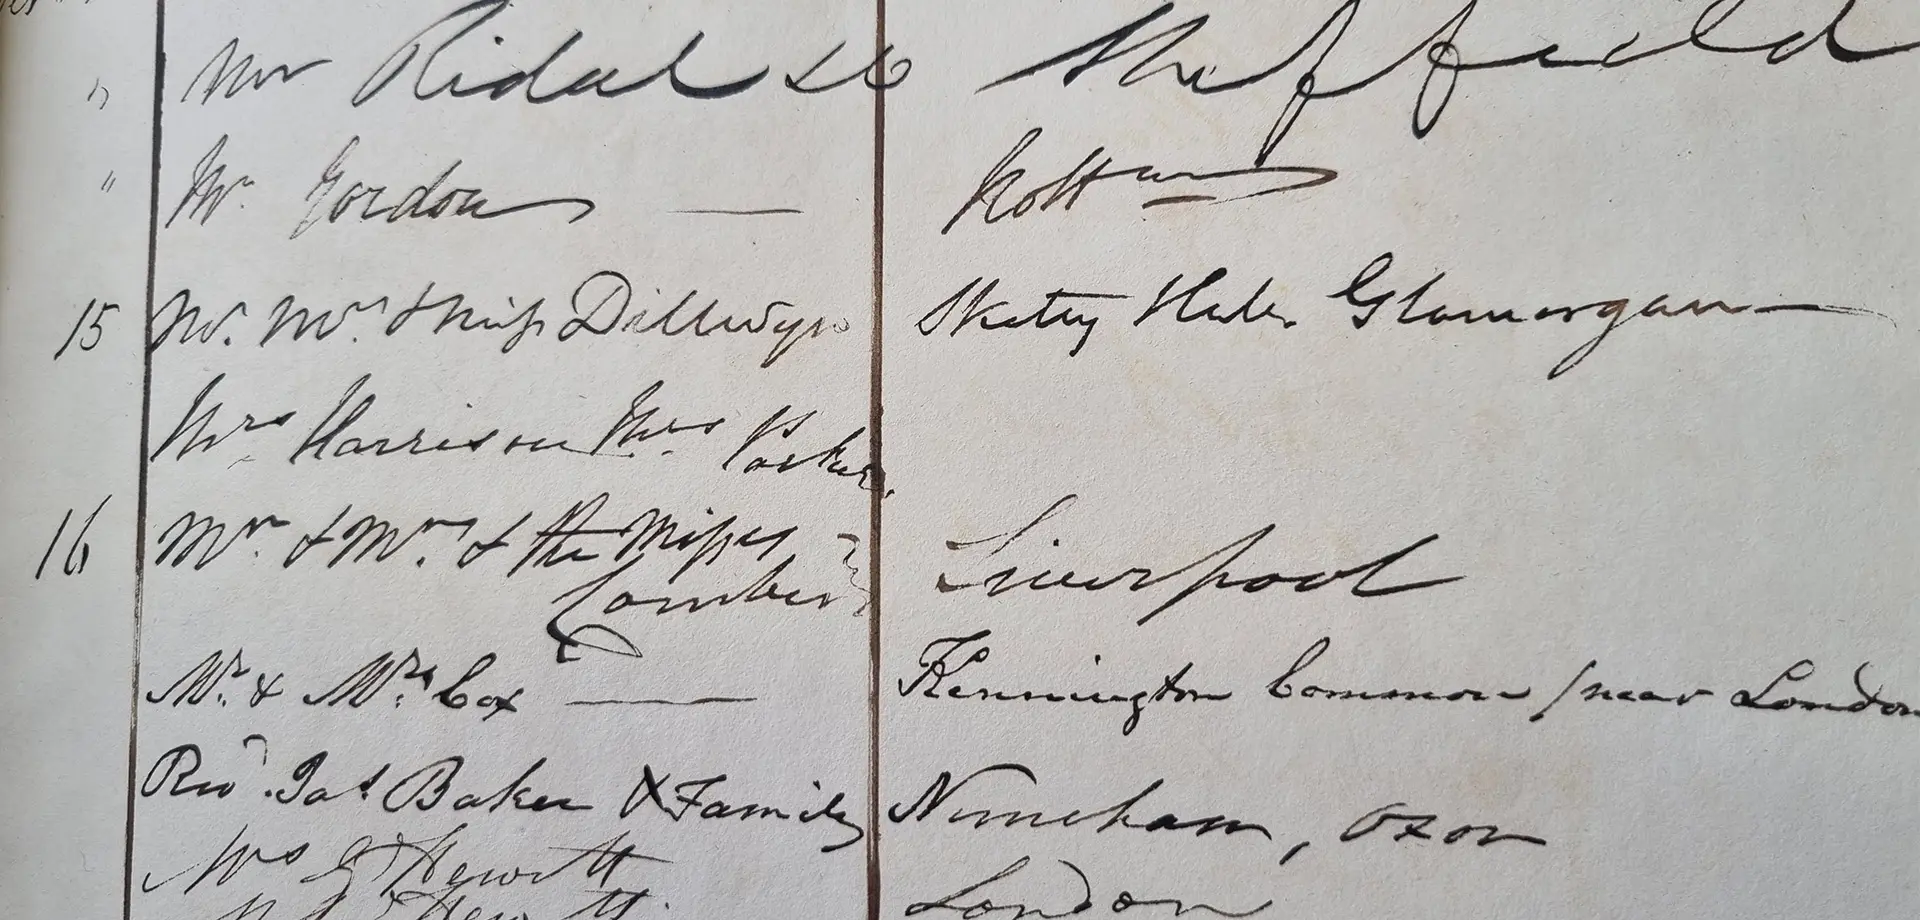 " Mr Ridal & Co Sheffield
" Mr. Gordon —
15 Mr. Mrs. & Miss Dillwyn Sketty Hall Glamorgan —
Mrs Harrison Mrs Parker.
16 Mr. & Mrs. & the Misses Liverpool
Mr. & Mrs. Cox — Kennington Common / near London
Revd. Jas. Baker & Family Nuneham, Oxon
Mrs G Hewitt London
Hewitt